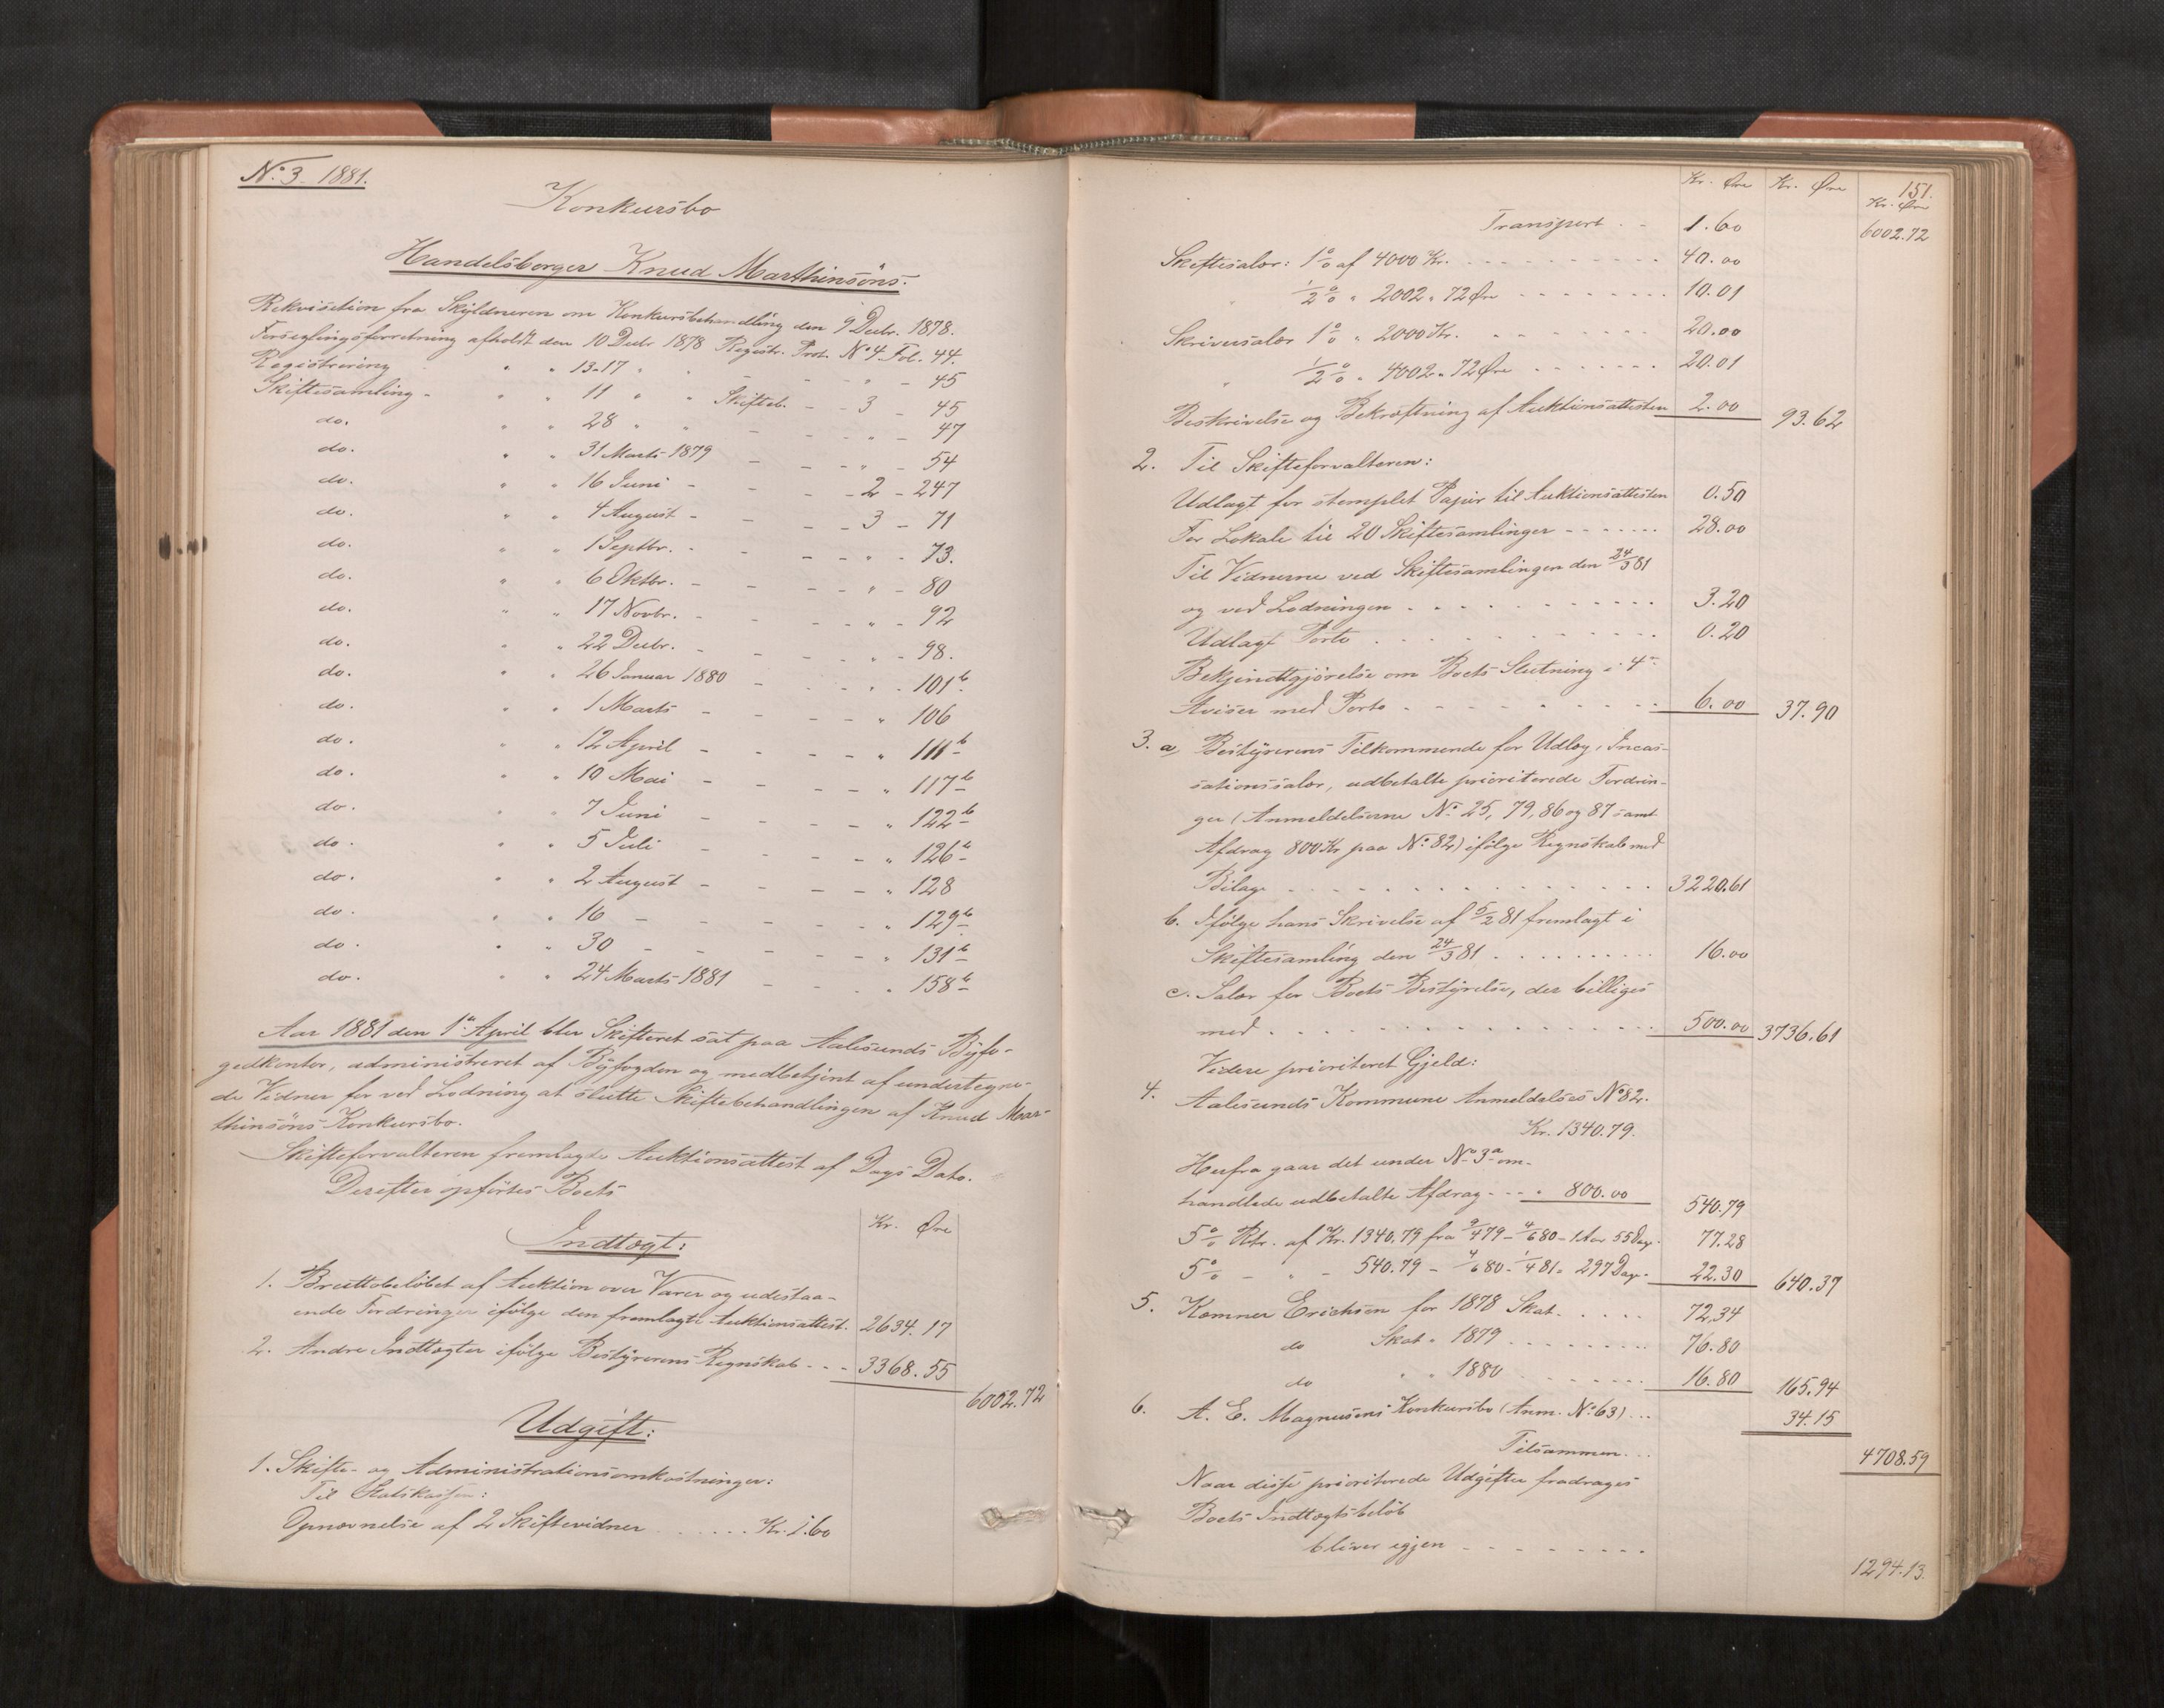 No. 3 1881.
Konkursbo
Handelsborger Knud Marthinsöns.
Rekvisition fra Skyldneren om Konkursbehandling den 9 Decbr. 1878.
Forseglingsforretning afholdt den 10 Decbr 1878 Registr. Prot. No 4. Fol. 44.
Registrering " " 13-17 " " - - " - 45
Skiftesamling - " " 11 " " Skifteb. - - 3 - 45
do. " " 28 " " - - - " - 47
do. " " 31 Marts 1879 - - - " - 54
do. " " 16 Juni - - - - 2 - 247
do. " " 4 August - - - - 3 - 71
do. " " 1 Septbr. - - - - " - 73.
do. " " 6 Oktbr. - - - - " - 80
do. " " 17 Novbr. - - - - " - 92
do. " " 22 Decbr. - - - - " - 98.
do. " " 26 Januar 1880 - - - " - 101b
do. " " 1 Marts - - - - " 106
do. " " 12 April - - - - " 111b
do. " " 10 Mai - - - - " 117b
do. " " 7 Juni - - - - " 122b
do. " " 5 Juli - - - - " 126b
do. " " 2 August - - - - " 128
do. " " 16 - - - - - " 129b
do. " " 30 - - - - - " 131b
do. " " 24 Marts 1881 - - - " 158b
Aar 1881 den 1ste April blev Skifteret sat paa Aalesunds Byfo-
gedkontor, administreret af Byfogden og medbetjent af undertegne-
de Vidner for ved Lodning at slutte Skiftebehandlingen af Knud Mar-
thinsöns Konkursbo.
Skifteforvalteren fremlagde Auktionsattest af Dags Dato.
Derefter opförtes Boets
Kr. Øre
Indtægt:
1. Bruttobelöbet af Auktion over Varer og udestaa-
ende Fordringer ifölge den fremlagte Auktionsattest. 2634.17
2. Andre Indtægter ifölge Bestyrerens Regnskab - - - 3368.55
6002.72
Udgift:
1. Skifte- og Administrationsomkostninger:
Til Statskassen:
Opnævnelse af 2 Skiftevidner . . . . . . Kr. 1.60
151.
Kr. Øre Kr. Øre Kr. Øre
Transport . - 1.60 6002.72
Skiftesalær: 1% af 4000 Kr. - - - - - - 40.00
" 1/2% " 2002 " 72 Øre - - - - - - 10.01
Skriversalær 1% " 2000 Kr. - - - - 20.00
" 1/2% " 4002 " 72 Øre - - - - - 20.01
Beskrivelse og Bekræftning af Auktionsattesten 2.00 93.62
2. Til Skifteforvalteren:
Udlagt for stemplet Papir til Auktionsattesten 0.50
For Lokale til 20 Skiftesamlinger - - - - - - 28.00
Til Vidnerne ved Skiftesamlingen den 24/3 81
og ved Lodningen . . . . . . . . 3.20
Udlagt Porto . . . . . . . . 0.20
Bekjendtgjörelse om Boets Slutning i 4re
Aviser med Porto . - - - - - - 6.00 37.90
3. a, Bestyrerens Tilkommende for Udlæg, Incas-
sationssalær, udbetalte prioriterede Fordrin-
ger (Anmeldelserne No. 25, 79, 86 og 87 samt
Afdrag 800 Kr paa No. 82) ifölge Regnskab med
Bilage . . . . . . . . . . . 3220.61
b. Ifölge hans Skrivelse af 5/2 81 fremlagt i
Skiftesamling den 24/3 81 . . . . . . . . 16.00
c. Salær for Boets Bestyrelse, der billiges
med . . . . . . . . . . . 500.00 3736.61
Videre prioriteret Gjeld:
4. Aalesunds Kommune Anmeldelses No 82.
Kr. 1340.79.
Herfra gaar det under No. 3 a om-
handlede udbetalte Afdrag - - - " 800.00 540.79
5% Rtr. af Kr. 1340.79 fra 9/4 79 - 4/6 80 - 1 Aar 55 Dag. 77.28
5% - " - 540.79 - 4/6 80 - 1/4 81 = 297 Dag. 22.30 640.37
5. Kæmner Erichsen for 1878 Skat . . . . . 72.34
do Skat " 1879 . . . . . . . . 76.80
do " " 1880 . . . . . . 16.80 165.94
6. A. E. Magnusens Konkursbo (Anm. No. 63) . . . 34.15
Tilsammen . . . 4708.59
Naar disse prioriterede Udgifter fradrages
Boets Indtægtsbelöb
bliver igjen - - - - - - - - 1294.13.